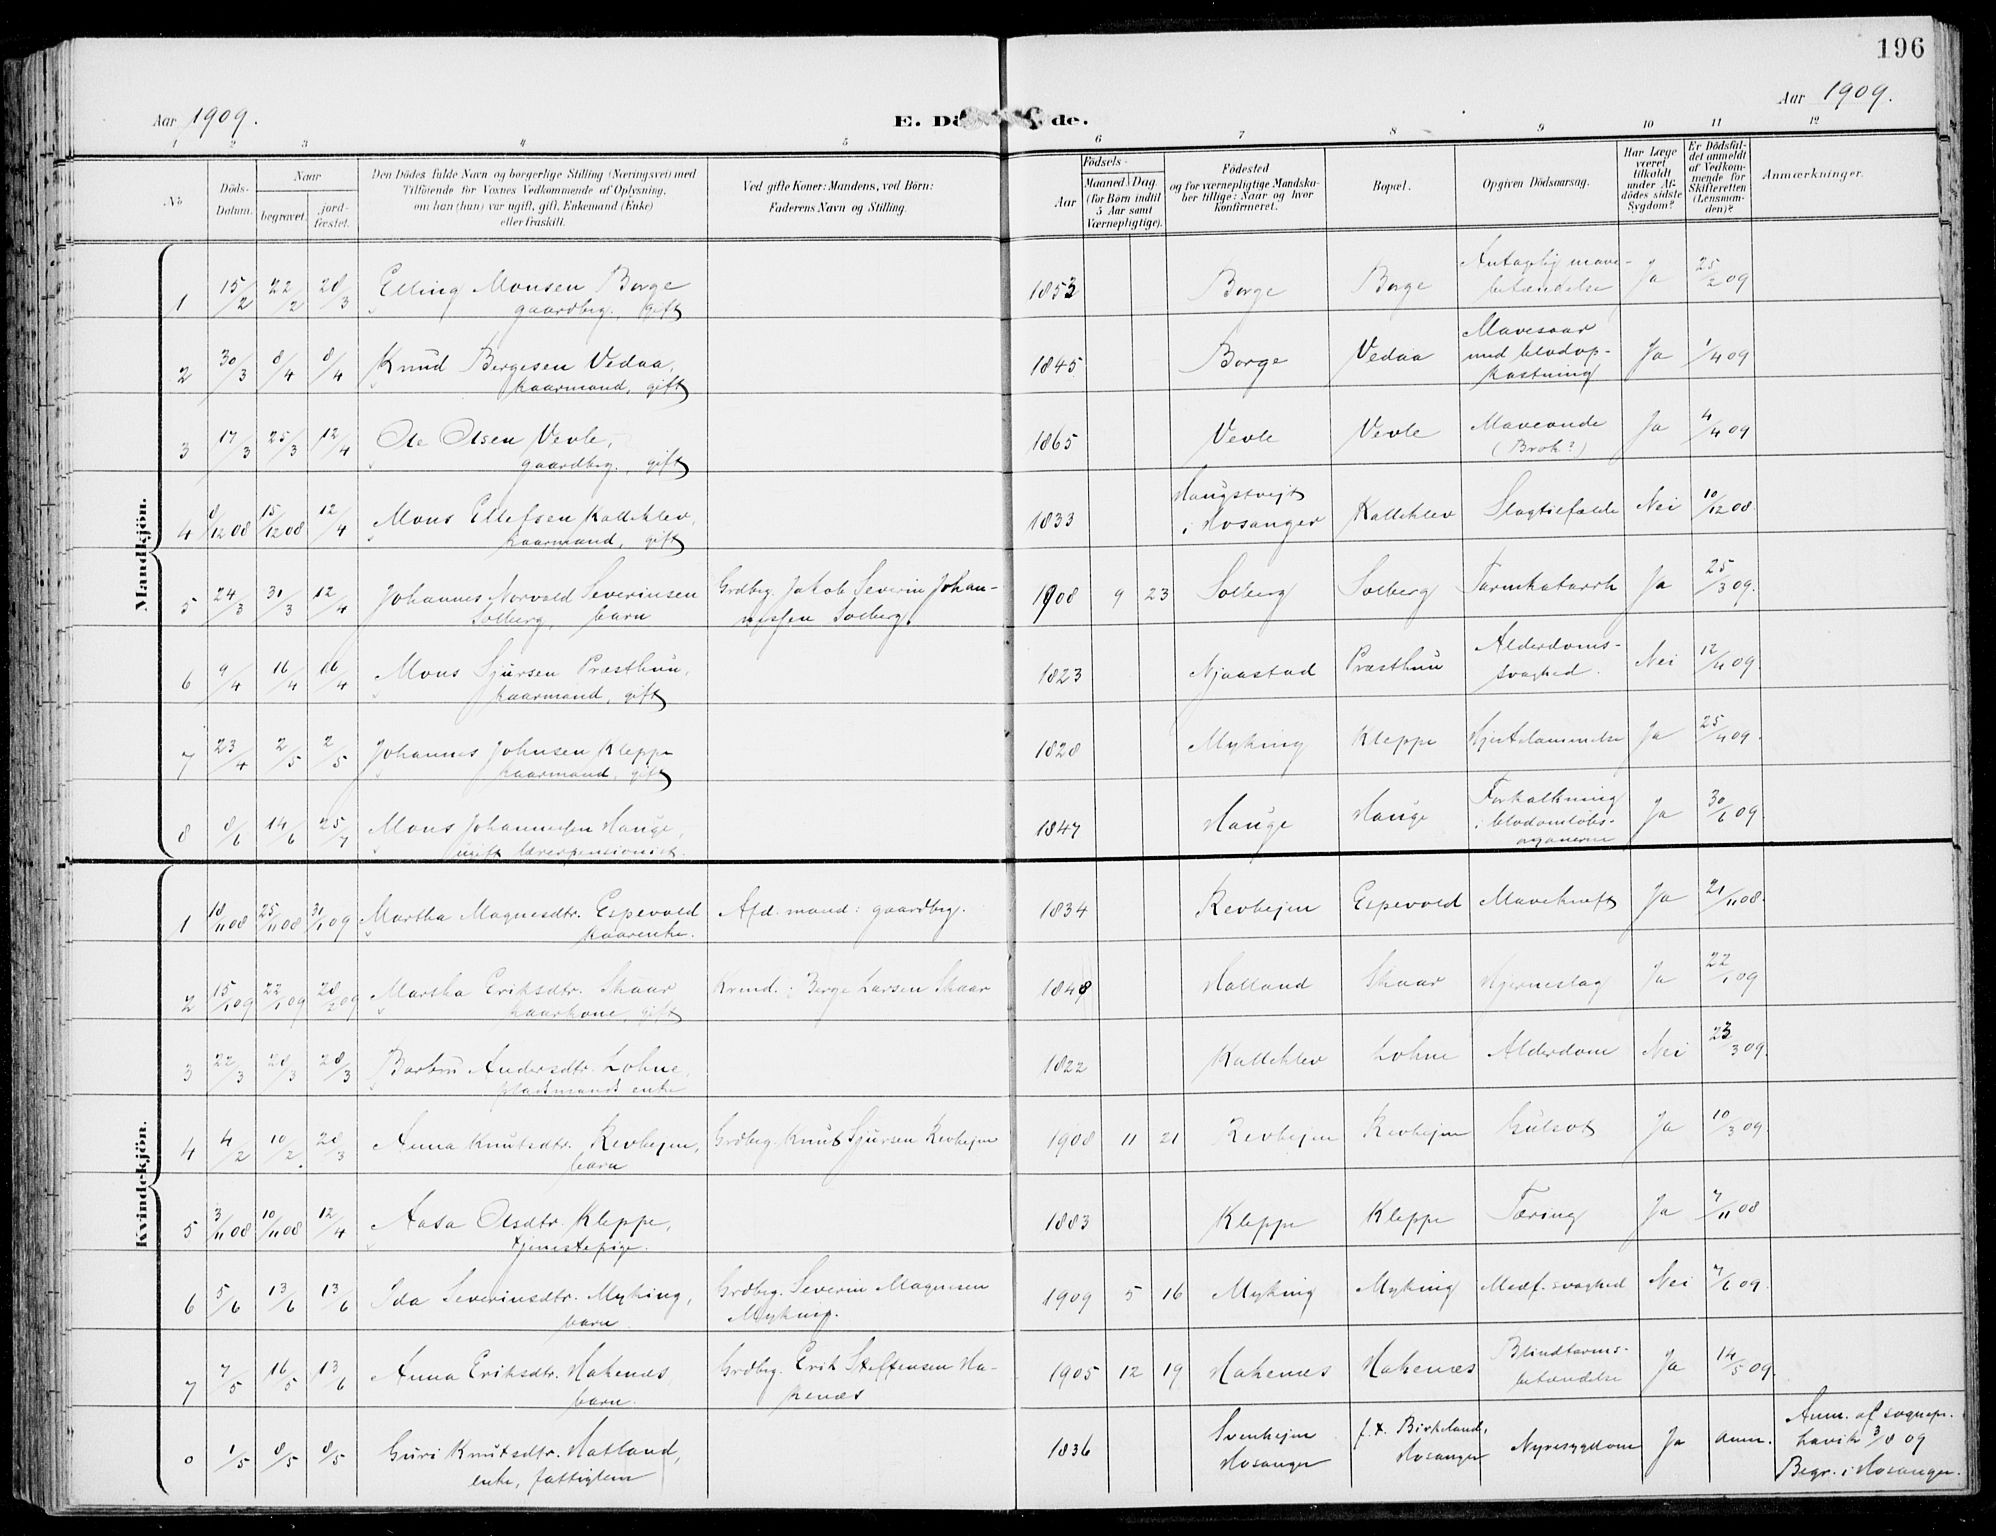 196
Aar 1909.
E. Dö de.
Aar 1909.
1 2 3 4 5 6 7 8 9 10 11 12
No
Döds-Datum.
Naar
begravet.
jord-fæstet.
Den Dödes fulde Navn og borgerlige Stilling (Næringsvei) med
Tilföiende for Voxnes Vedkommende af Oplysning,
om han (hun) var ugift, gift, Enkemand (Enke)
eller fraskilt.
Ved gifte Koner: Mandens, ved Børn:
Faderens Navn og Stilling.
Födsels-
Aar
Maaned. Dag.
(for Børn indtil
5 Aar samt
Værnepligtige).
Födested
og for værnepligtige Mandska-
ber tillige: Naar og hvor
konfirmeret.
Bopæl.
Opgiven Dödsaarsag.
Har Læge
været
tilkaldt
under Af-
dödes sidste
Sygdom?
Er Dödsfal-
det anmeldt
af Vedkom-
mende for
Skifteretten
(Lensman-
den)?
Anmærkninger.
Mandkjön.
1 15/2 22/2 28/3 Elling Monsen Borge 1853 Borge Borge Antagelig mave- Ja 25/2 09
gaardbrg., gift betændelse
2 30/3 8/4 8/4 Knud Børgesen Vedaa, 1845 Borge Vedaa Mavesaar Ja 1/4 09
kaarmand, gift med blodop-
kastning
3 17/3 25/3 12/4 Ole Olsen Vevle, 1865 Vevle Vevle Maveonde Ja 4/4 09
gaardbrg., gift (Brok?)
4 8/12 08 15/12 08 12/4 Mons Ellefsen Kalleklev, 1833 Haugstvejt Kalleklev Slagtilfælde Nei 10/12 08
kaarmand, gift i Hosanger
5 24/3 31/3 12/4 Johannes Norvald Severinsen Grdbrg. Jakob Severin Johan- 1908 9 23 Solberg Solberg Tarmkatarrh Ja 25/3 09.
Solberg, barn nessen Solberg.
6 9/4 16/4 16/4 Mons Sjursen Præsthun, 1823 Njaastad Præsthun Alderdoms- Nei 12/4 09
kaarmand, gift svaghed.
7 23/4 2/5 2/5 Johannes Johnsen Kleppe 1828 Myking Kleppe Hjertelammelse Ja 25/4 09.
kaarmand, gift
8 8/6 14/6 25/7 Mons Johannessen Hauge, 1847 Hauge Hauge Forkalkning Ja 30/6 09
ugift lærerpensionist. i blodomløbs-
organerne
Kvindekjön.
1 18/11 08 25/11 08 31/1 09 Martha Magnesdtr. Espevold Afd. mand: gaardbrg. 1834 Revhejm Espevold Mavekræft Ja 21/11 08.
kaarenke.
2 15/1 09 22/1 09 28/2 09 Martha Eriksdtr. Skaar Krmd.: Berge Larsen Skaar 1848 Halland Skaar Hjerneslag Ja 22/1 09
kaarkone, gift
3 22/3 28/3 28/3 Barbru Andersdtr. Lohne, 1822 Kalleklev Lohne Alderdom Nei 23/3 09.
pladsmands enke
4 4/2 10/2 28/3 Anna Knutsdtr. Revhejm, Grdbrg. Knut Sjursen Revhejm 1908 11 21 Revhejm Revhejm Gulsot Ja 10/3 09.
barn
5 3/11 08 10/11 08 12/4 Aasa Olsdtr. Kleppe, 1883 Kleppe Kleppe Tæring Ja 7/11 08
tjenestepige.
6 5/6 13/6 13/6 Ida Severinsdtr. Myking, Grdbrg. Severin Magnesen 1909 5 16 Myking Myking Medf. svaghed Nei 7/6 09.
barn. Myking.
7 7/5 16/5 13/6 Anna Eriksdtr. Hakenæs Grdbrg. Erik Steffensen Ha- 1905 12 19 Hakenæs Hakenæs Blindtarms- Ja 14/5 09.
barn. kenæs betændelse
8 1/5 8/5 8/5 Guri Knutsdtr. Hatland, 1836 Svenhejm f. t. Birkeland, Nyresygdom Ja anm. Anm. af sognepr.
enke, fattiglem Hosanger Hosanger Lavik 3/8 09
Begr. i Hosanger.